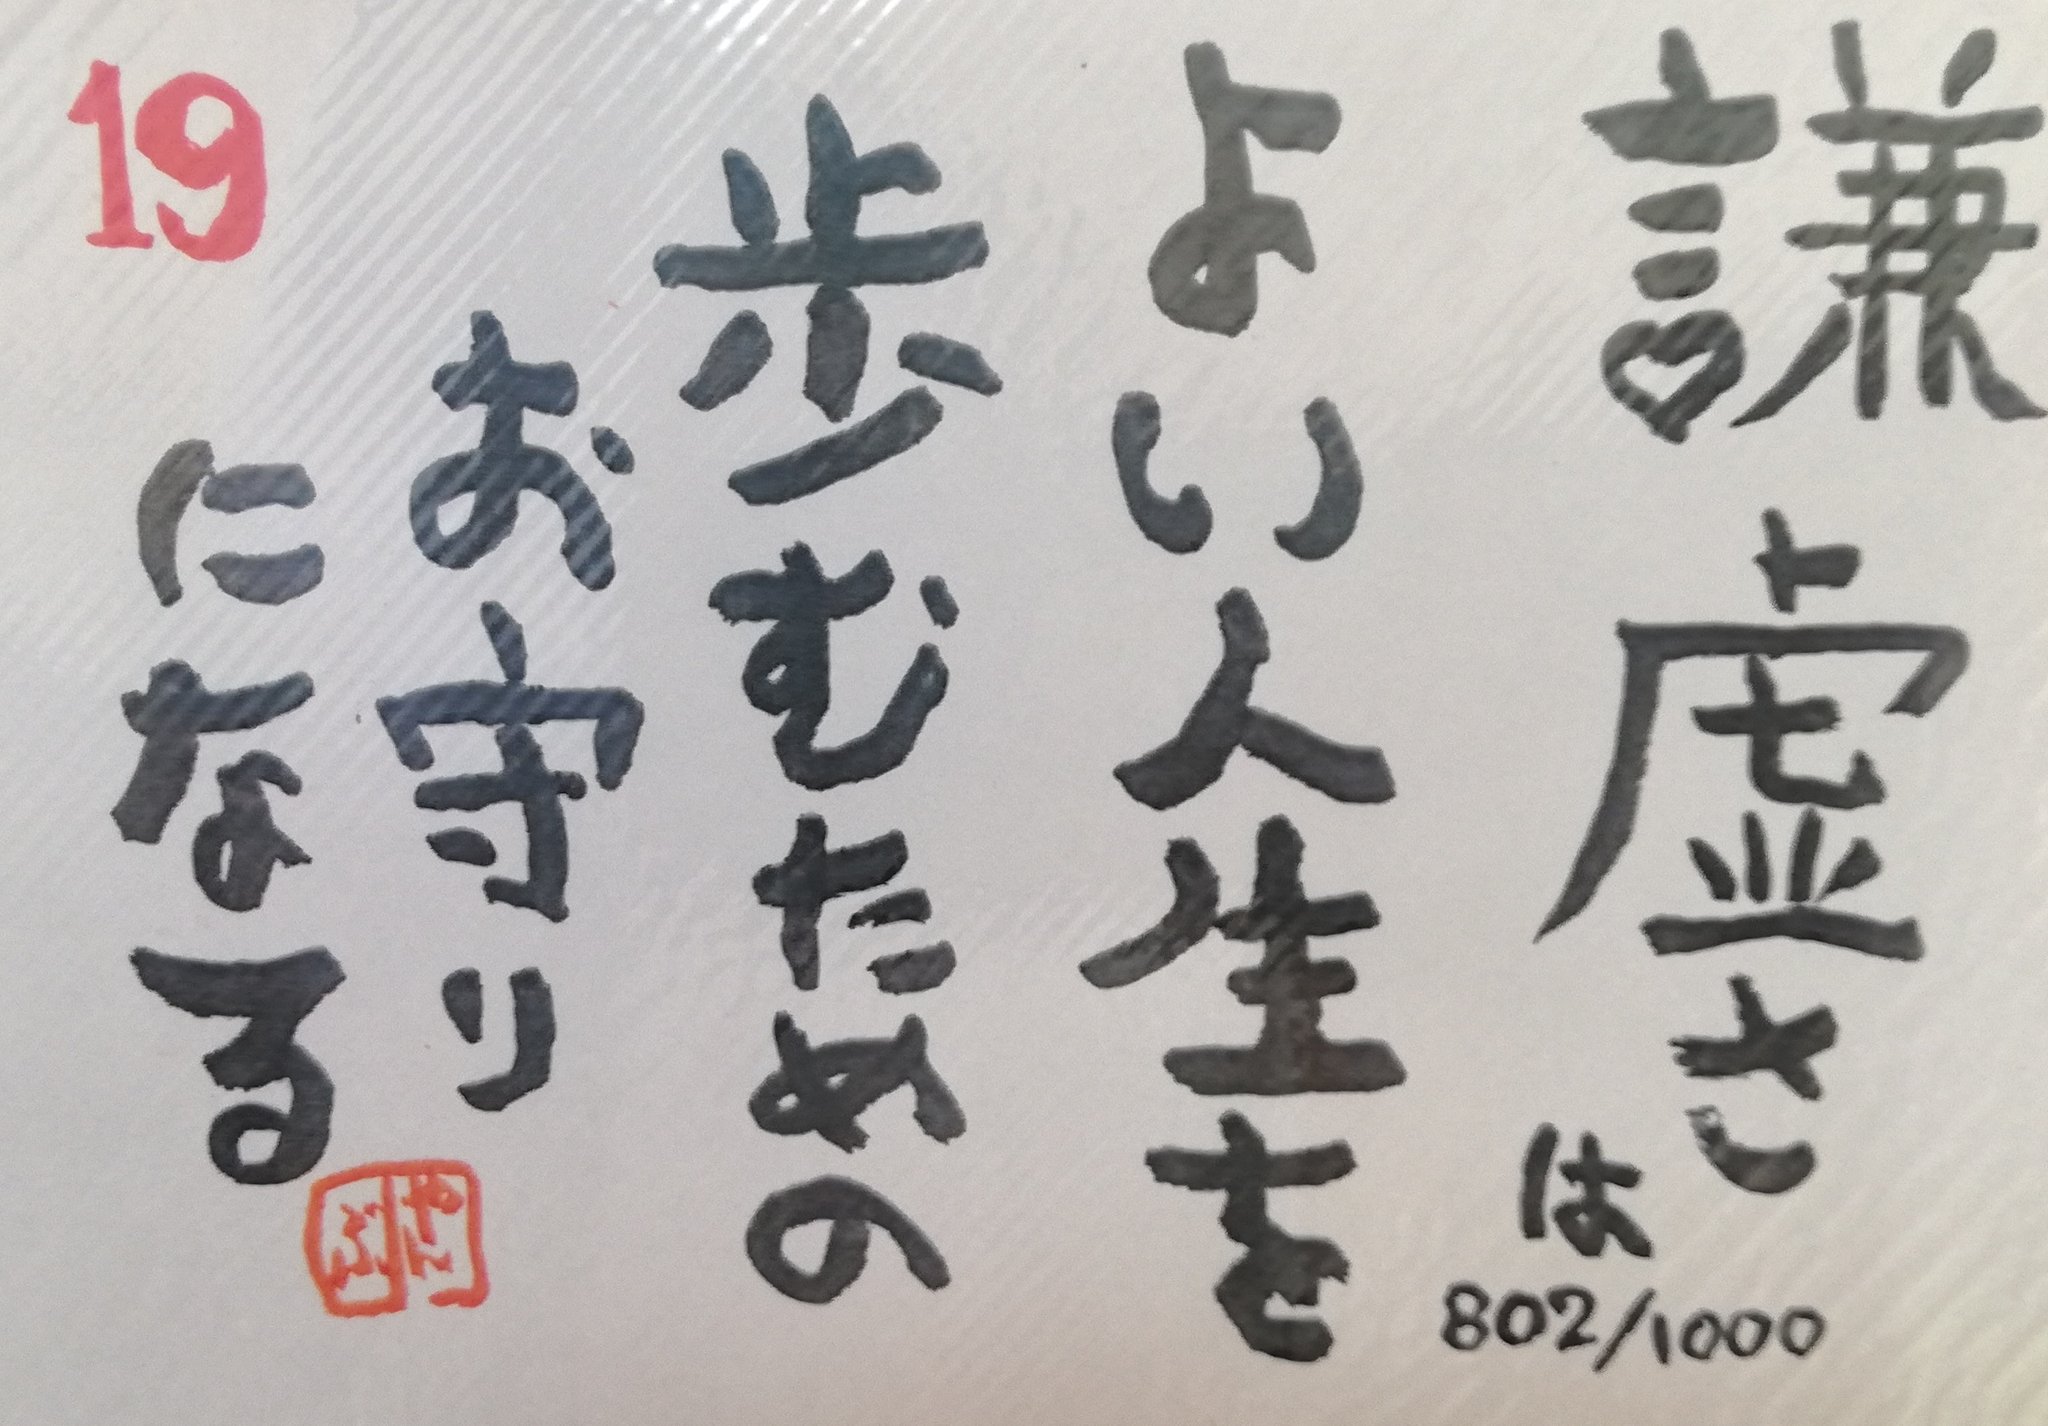 謙虚さは
802/1000
よい人生を
歩むための
お守り
になる
19
やん
ぶん